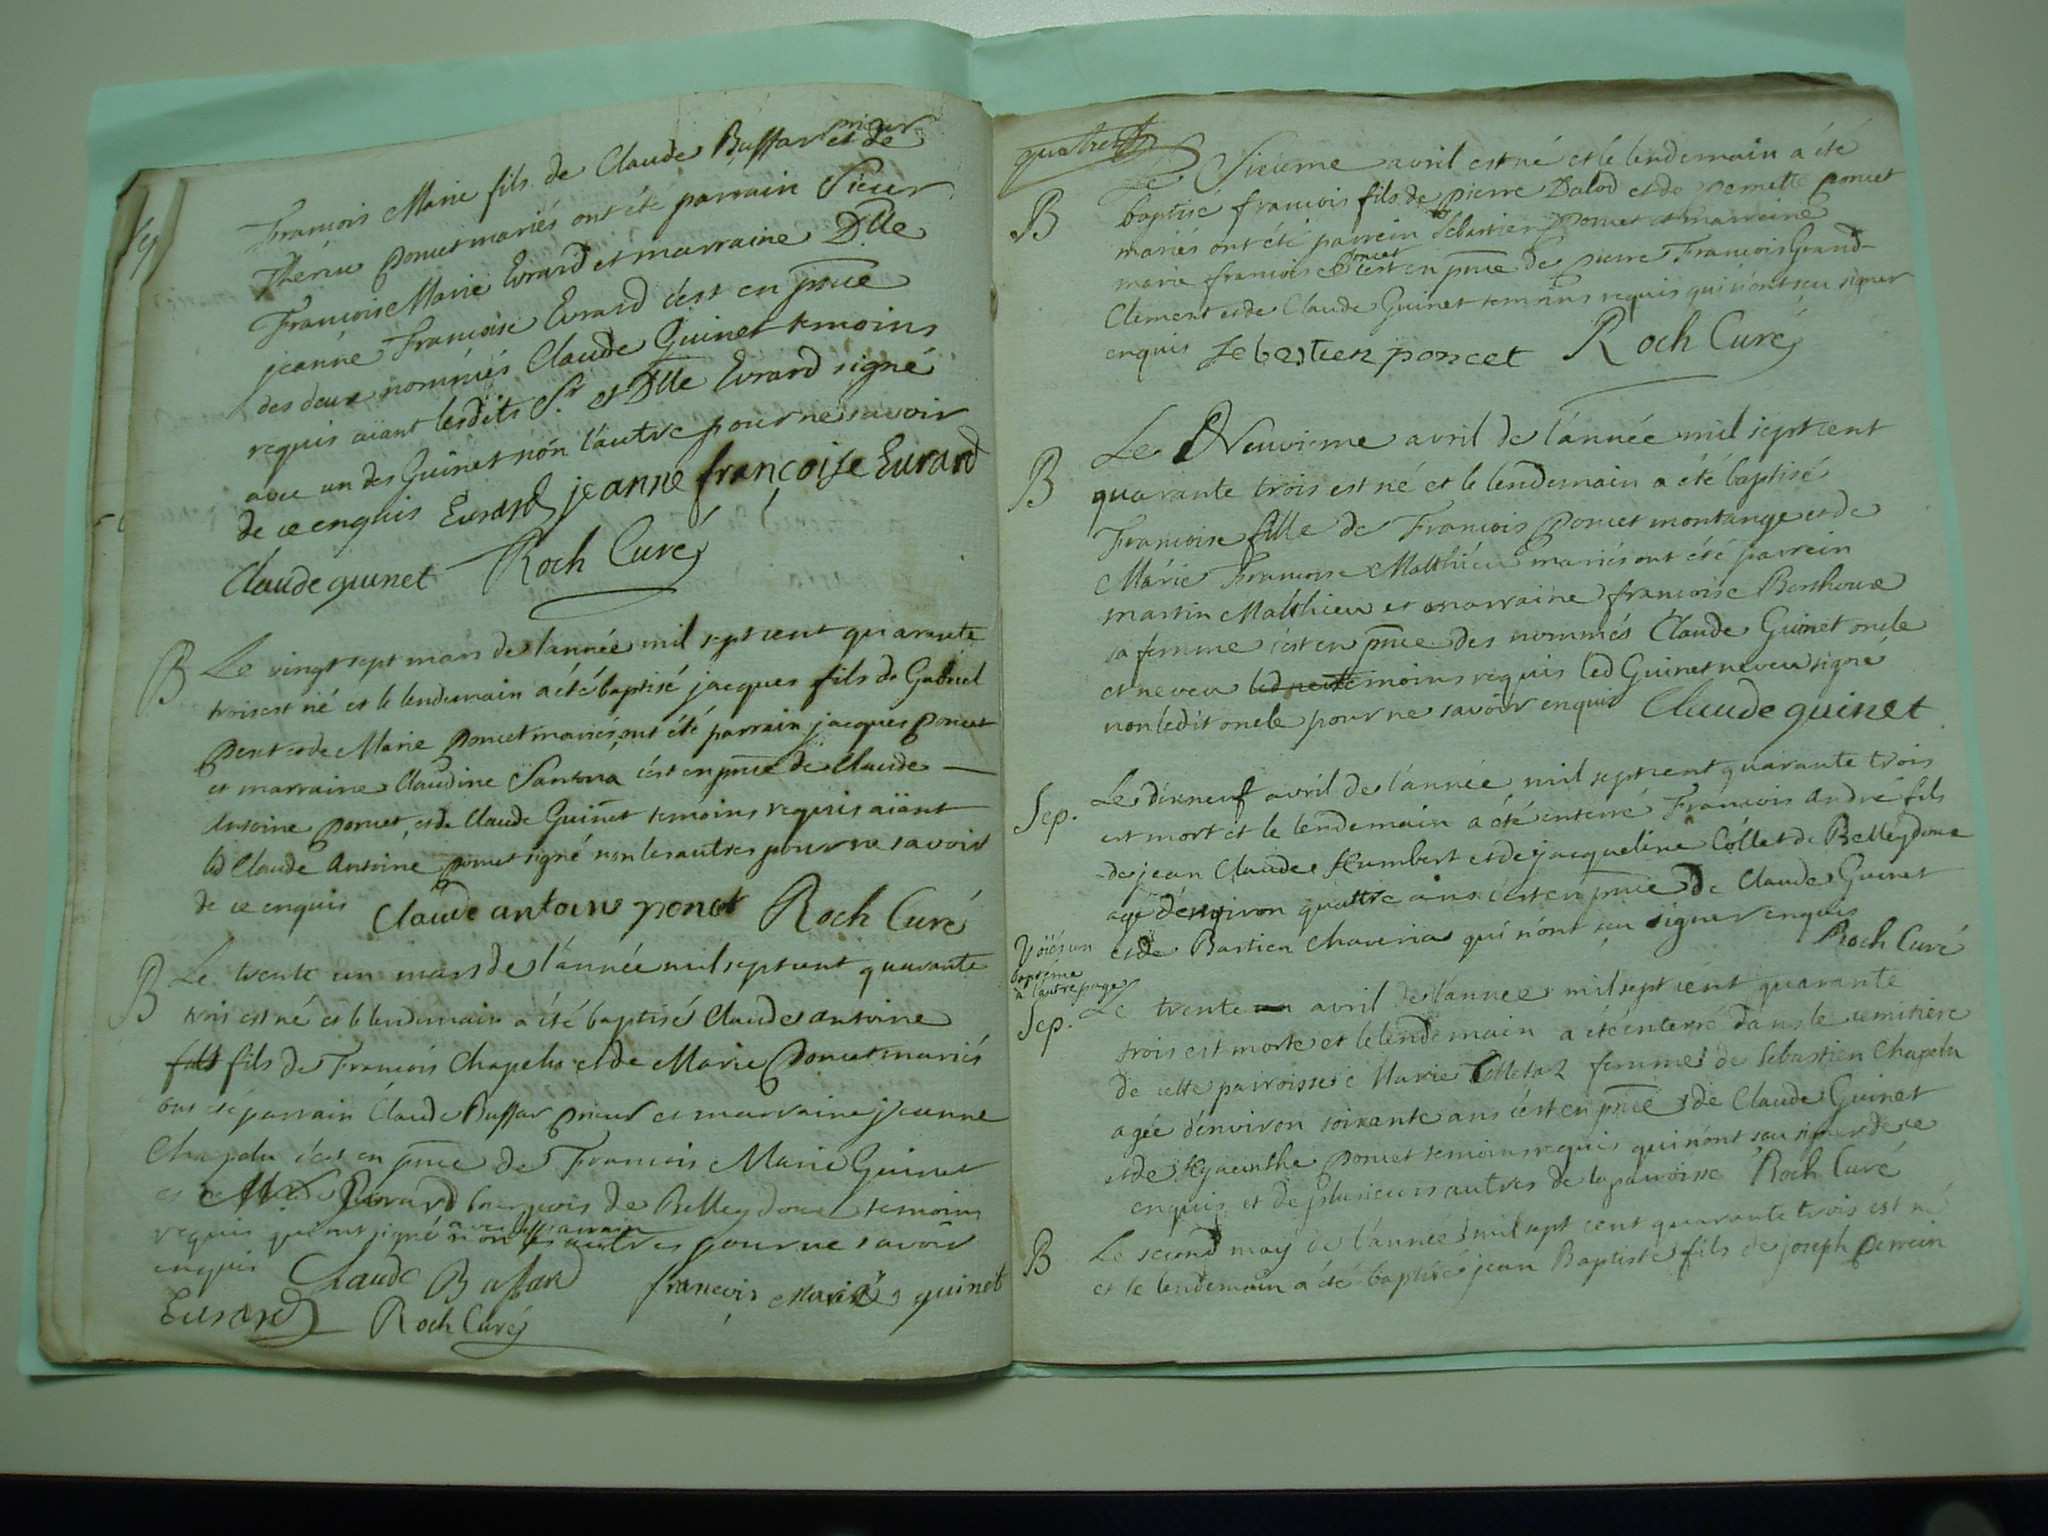 François Marie fils de Claude Buffar prieur et de
Thérèse poncet mariés ont été parrain Sieur
François Marie Evrard et marraine Dlle
jeanne Françoise Evrard c'est en pnce
des deux nommés Claude Guinet temoins
requis aïant lesdits Sr et Dlle Evrard signé
avec un des Guinet non l'autre pour ne savoir
de ce enquis Evrard jeanne françoise Evrard
Claude guinet Roch Curé
B Le vingt sept mars de l'année mil sept cent quarante
trois est né et le lendemain a été baptisé jacques fils de Gabriel
et de Marie poncet mariés ont été parrain jacques poncet
et marraine Claudine c'est en pnce de Claude
Antoine poncet et de Claude Guinet temoins requis aïant
led Claude Antoine poncet signé non les autres pour ne savoir
de ce enquis Claude antoine poncet Roch Curé
B Le trente un mars de l'année mil sept cent quarante
trois est né et le lendemain a été baptisé Claude antoine
fils de François Chapelu et de Marie Poncet mariés
ont été parrain Claude Buffar prieur et marraine jeanne
Chapelu c'est en pnce de François Marie Guinet
et Evrard bourgeois de Belleydoux temoins
requis qui ont signé avec le parrain non les autres pour ne savoir
enquis Claude Bufard francois marie guinet
Evrard Roch Curé
quatre
Le Sixieme avril est né et le lendemain a été
B baptisé françois fils de pierre Dalod et de pernette poncet
mariés ont été parrein Sebastien poncet et marreine
marie francoise poncet c'est en pnce de pierre François Grand-
Clement et de Claude Guinet temoins requis qui n'ont seu signer
enquis Sebestien poncet Roch Curé
Le Neuvieme avril de l'année mil sept cent
B quarante trois est né et le lendemain a été baptisé
Françoise fille de François Poncet montange et de
Marie Françoise Matthieu mariés ont été parrein
martin Matthieu et marraine françoise Berthoux
sa femme c'est en pnce des nommés Claude Guinet oncle
et neveu temoins requis led Guinet neveu signé
non ledit oncle pour ne savoir enquis Claude guinet
Sep. Le dixneuf avril de l'année mil sept cent quarante trois
est mort et le lendemain a été enterré François André fils
de jean Claude Humbert et de jacqueline Collet de Belleydoux
agé d'environ quattre ans c'est en pnce de Claude Guinet
et de Bastien Chaveria qui n'ont seu signer enquis
Roch Curé
Voiés un
baptême
à l'autre page
Sep. Le trente avril de l'année mil sept cent quarante
trois est morte et le lendemain a été enterré dans le cemitiere
de cette parroisse Marie Colletaz femme de Sebastien Chapelu
agée d'environ soixante ans c'est en pnce de Claude Guinet
et de Hyacinthe poncet temoins requis qui n'ont seu signer de ce
enquis et de plusieurs autres de la paroisse Roch Curé
B Le second may de l'année mil sept cent quarante trois est né
et le lendemain a été baptisé jean Baptiste fils de joseph perrein